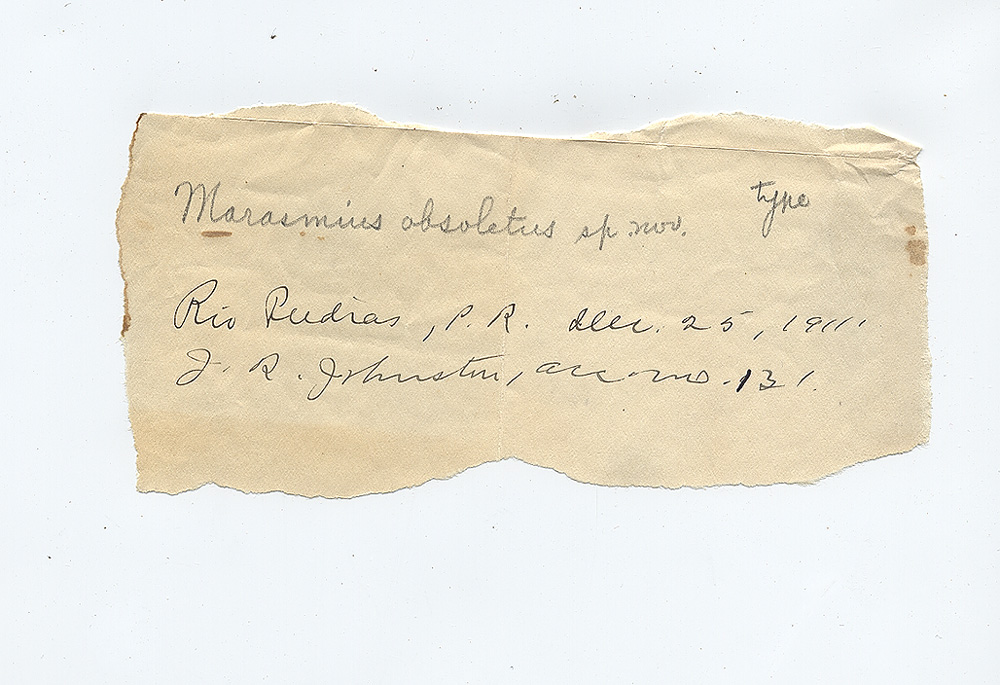 Marasmius obsoletus sp. nov. type
Rio Piedras, P. R. Dec. 25, 1911.
J. R. Johnston, acc. no. 131.